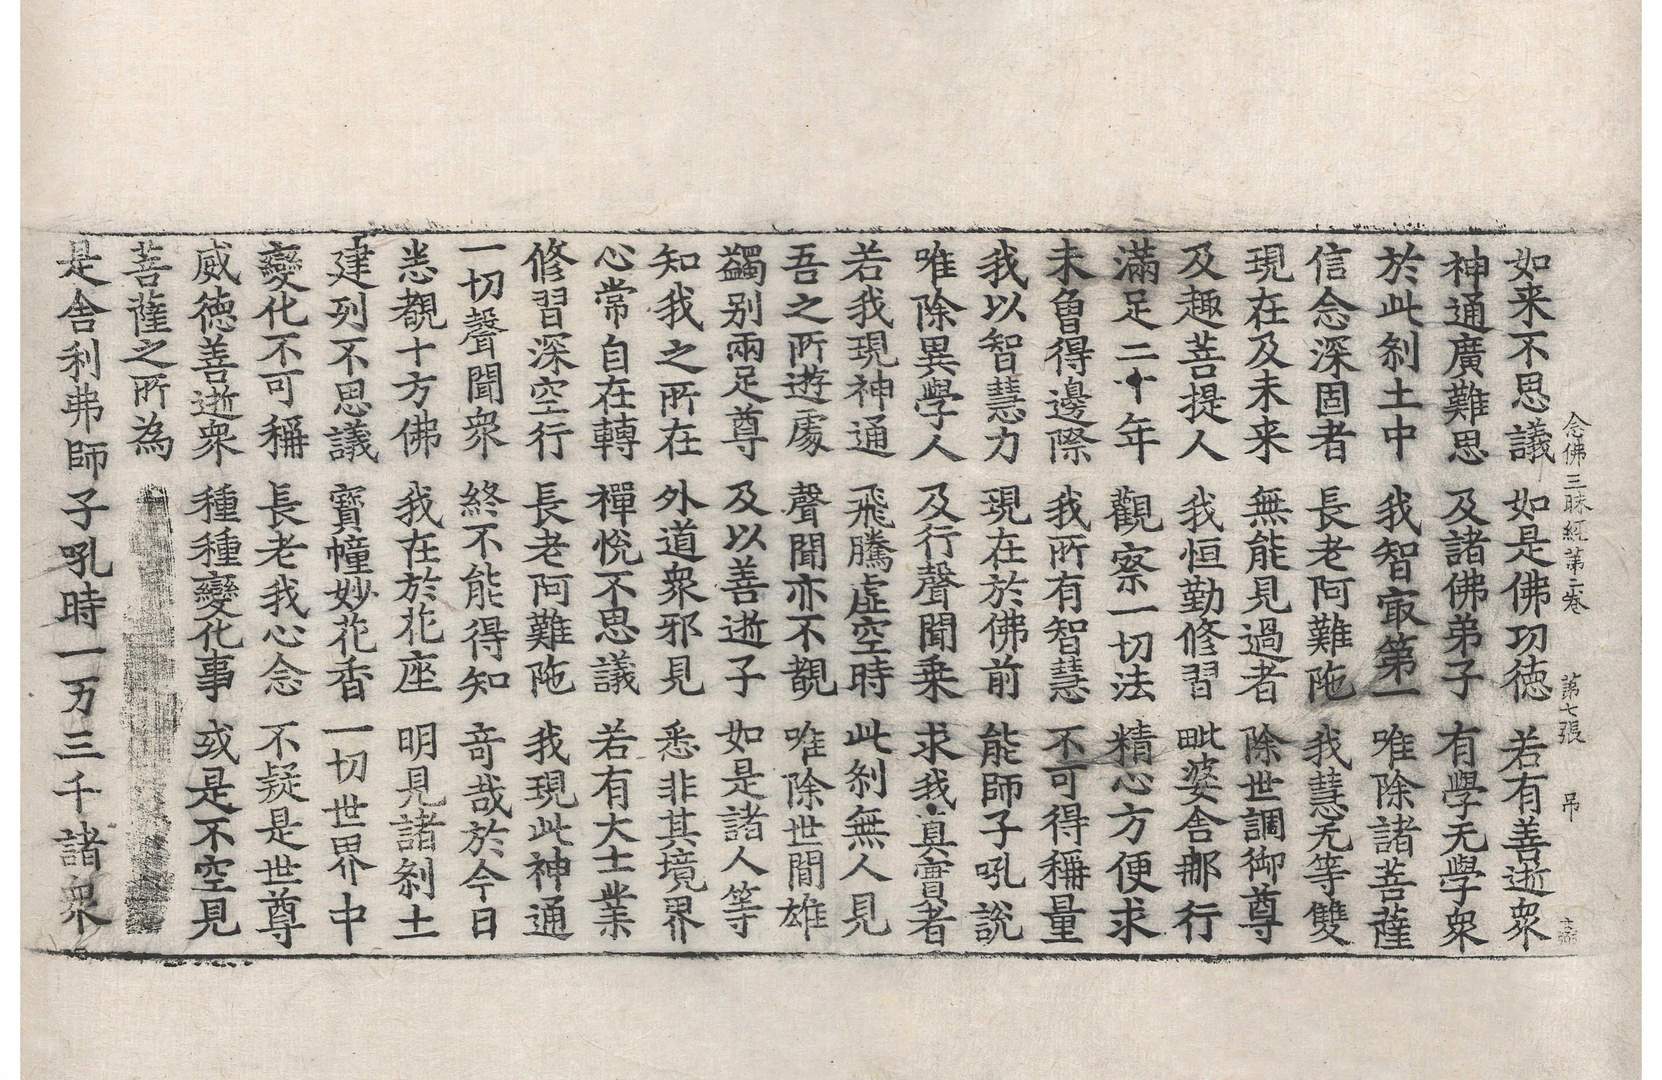 念佛三昧經第二卷 第七張 弔
如来不思議 如是佛功德 若有善逝衆
神通廣難思 及諸佛弟子 有學无學衆
於此刹土中 我智㝡第一 唯除諸菩薩
信念深固者 長老阿難陁 我慧无等雙
現在及未来 無能見過者 除世調御尊
及趣菩提人 我恒勤修習 毗婆舎那行
滿足二十年 觀察一切法 精心方便求
未曾得邊際 我所有智慧 不可得稱量
我以智慧力 現在於佛前 能師子吼説
唯除異學人 及行聲聞乗 求我真實者
若我現神通 飛騰虛空時 此刹無人見
吾之所遊處 聲聞亦不覩 唯除世間雄
蠲别兩足尊 及以善逝子 如是諸人等
知我之所在 外道衆邪見 悉非其境界
心常自在轉 禪悅不思議 若有大士業
修習深空行 長老阿難陁 我現此神通
一切聲聞衆 終不能得知 竒哉於今日
悉覩十方佛 我在於花座 明見諸刹土
建列不思議 寳幢妙花香 一切世界中
變化不可稱 長老我心念 不疑是世尊
威德善逝衆 種種變化事 或是不空見
菩薩之所為
是舎利弗師子吼時一万三千諸衆